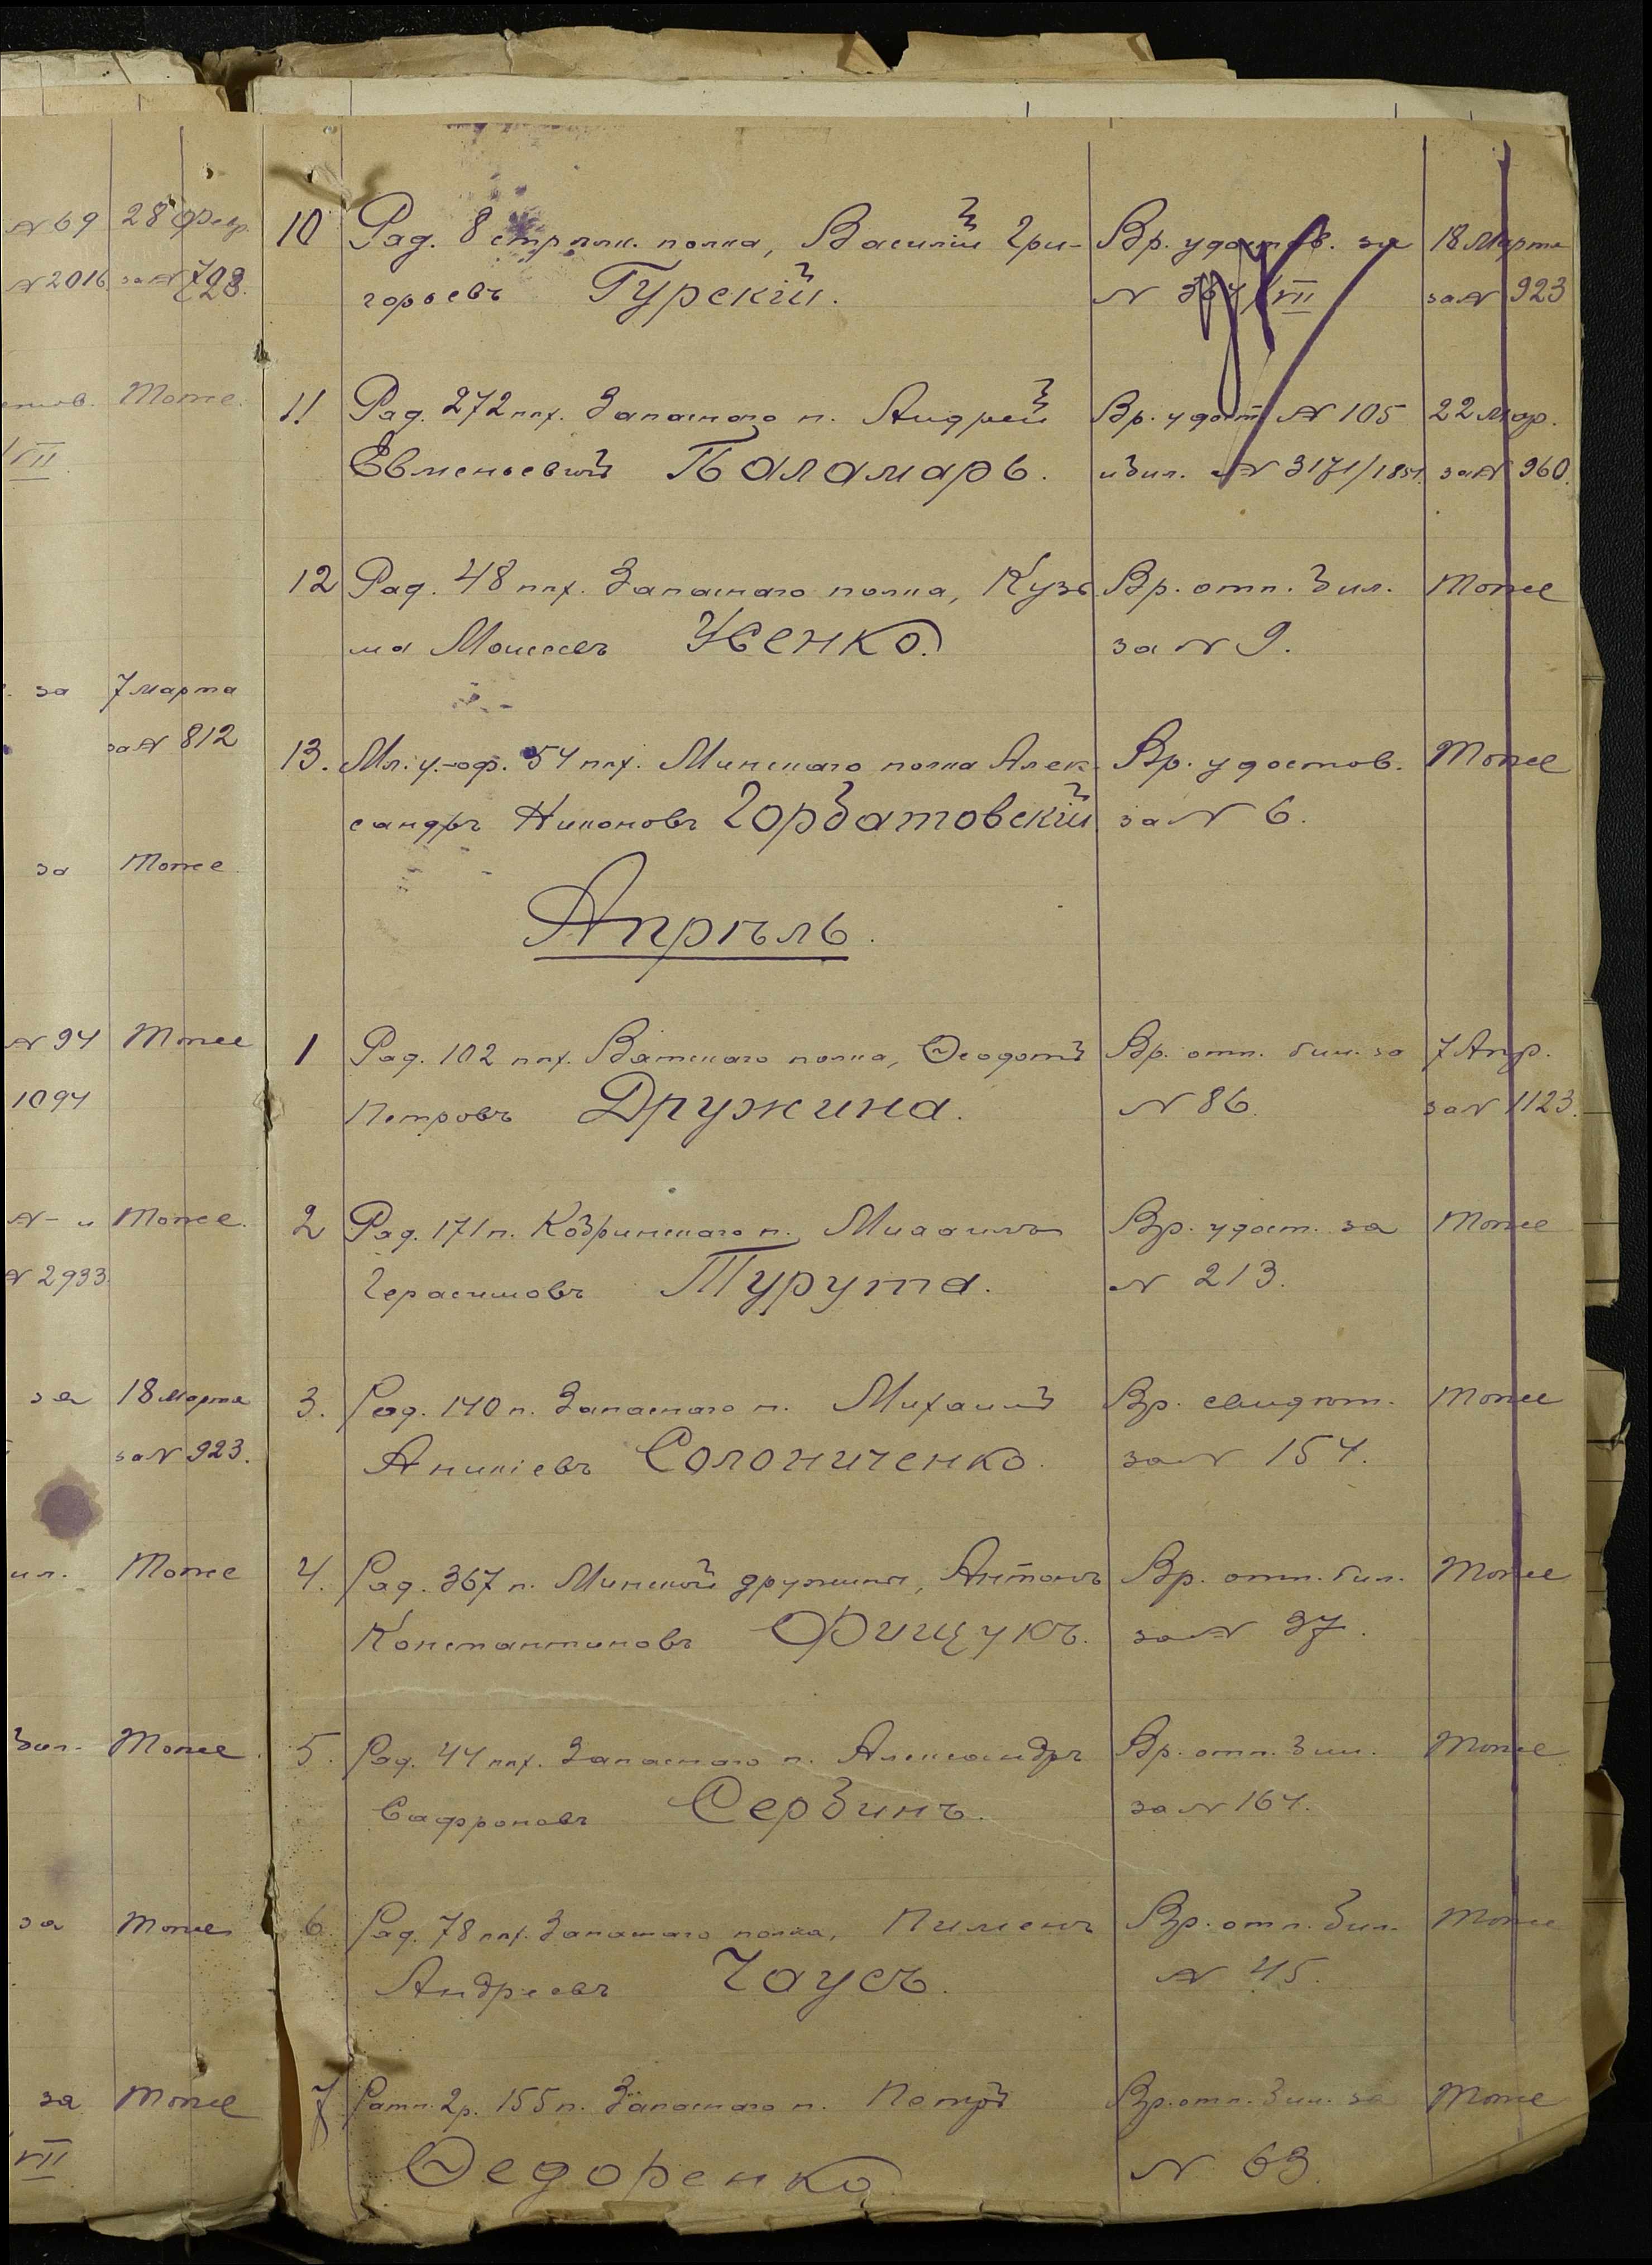 № 69 28 Февр.
№ 2016 за № 703.
Тоже.
VII
за 7 марта
за № 812
за Тоже
№ 94 Тоже
1094
№ - и Тоже.
№ 2933.
за 18 Марта
за № 923.
Тоже
бил. Тоже
за Тоже
за Тоже
VII
10 Ряд. 8 стрплк. полка, Василій Гри- Вр. удостов. за 18 Марта
горьевъ Гурскій. № 364/VII за № 923
11 Ряд. 272 пѣх. Запаснаго п. Андрей Вр. удост № 105 22 Мар.
Евменьевичъ Паламарь. и бил. № 3171/1851. за № 960.
12 Ряд. 48 пѣх. Запаснаго полка, Кузь Вр. отп. бил. Тоже
ма Моисеевъ Усенко. за № 9.
13. Мл. у.-оф. 54 пѣх. Минскаго полка Алек- Вр. удостов. Тоже
сандръ Никоновъ Горбатовскій за № 6.
Апрѣль.
1 Ряд. 102 пѣх. Вятскаго полка, Ѳеодотъ Вр. отп. бил. за 7 Апр.
Петровъ Дружина. № 86. за № 1123.
2 Ряд. 171 п. Кобринскаго п. Михаилъ Вр. удост. за Тоже
Герасимовъ Турута. № 213.
3. Ряд. 140 п. Запаснаго п. Михаилъ Вр. свидѣт. Тоже
Аникіевъ Солониченко. за № 154.
4. Ряд. 367 п. Минской дружины, Антонъ Вр. отп. бил. Тоже
Константиновъ Фищукъ. за № 37.
5. Ряд. 44 пѣх. Запаснаго п. Александръ Вр. отп. бил. Тоже
Сафроновъ Сербинъ. за № 164.
6 Ряд. 78 пѣх. Запаснаго полка, Пименъ Вр. отп. бил. Тоже
Андреевъ Чаусъ. № 45.
7 Ратн. 2 р. 155 п. Запаснаго п. Петръ Вр. отп. бил. за Тоже
Ѳедоренко № 63.